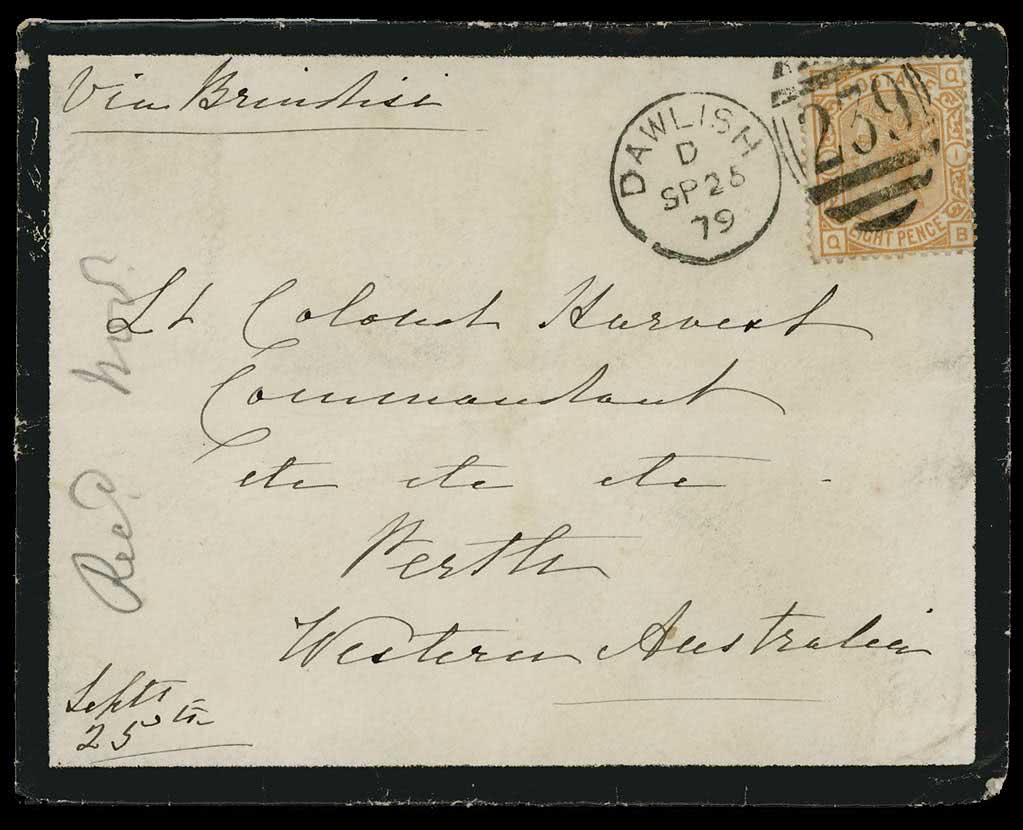 Via Brindisi
DAWLISH
D
SP 25
79
239
Q
EIGHT PENCE
Q B
Lt Colonel Harvest
Commandant
etc etc etc
Perth
Western Australia
Septr
25th
Recd Nov